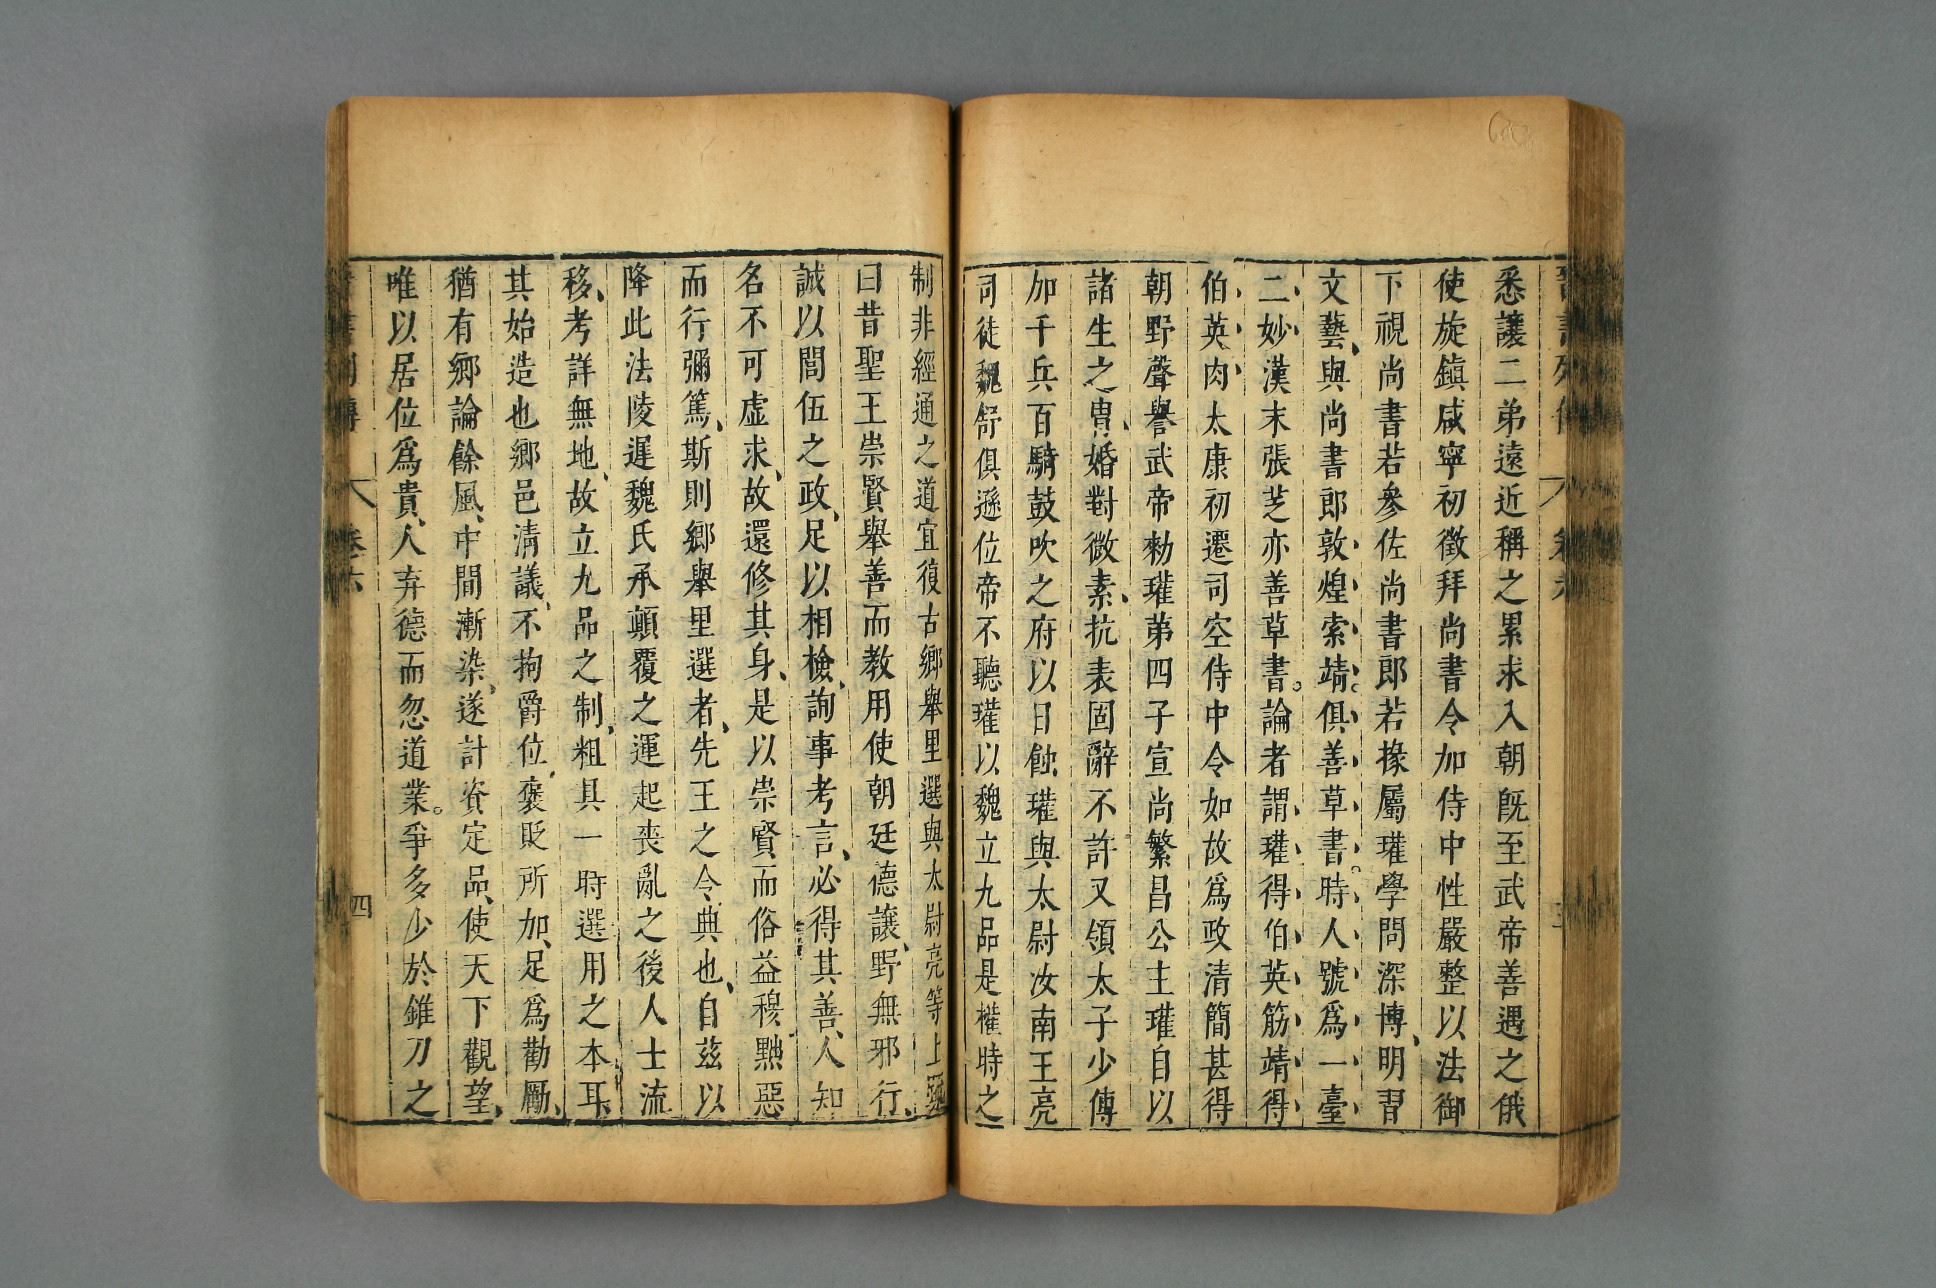 悉讓二弟遠近稱之累求入朝旣至武帝善遇之俄
使旋鎮咸寧初徵拜尚書令加侍中性嚴整以法御
下視尚書若參佐尚書郎若掾屬瓘學問深博、明習
文藝、與尚書郎敦煌索靖。俱善草書。時人號爲一臺
二妙漢末張芝亦善草書。論者謂瓘得伯英筋靖得
伯英肉太康初遷司空侍中令如故爲政清簡甚得
朝野聲譽武帝勑瓘弟四子宣尚繁昌公主瓘自以
諸生之胄、婚對微素、抗表固辭不許又領太子少傅
加千兵百騎鼓吹之府以日蝕瓘與太尉汝南王亮
司徒魏舒俱遜位帝不聽瓘以魏立九品是權時之
制非經通之道宜復古鄉舉里選與太尉亮等上疏
曰昔聖王崇賢舉善而教用使朝廷德讓、野無邪行、
誠以閭伍之政、足以相檢、詢事考言、必得其善、人知
名不可虛求、故還修其身、是以崇賢而俗益穆黜惡
而行彌篤、斯則鄉舉里選者、先王之令典也、自茲以
降此法陵遲魏氏承顛覆之運起喪亂之後人士流
移、考詳無地、故立九品之制、粗具一時選用之本耳、
其始造也鄉邑清議、不拘爵位、褒貶所加、足爲勸勵、
猶有鄉論餘風、中間漸染、遂計資定品、使天下觀望、
唯以居位爲貴、人弃德而忽道業。爭多少於錐刀之
卷六
四